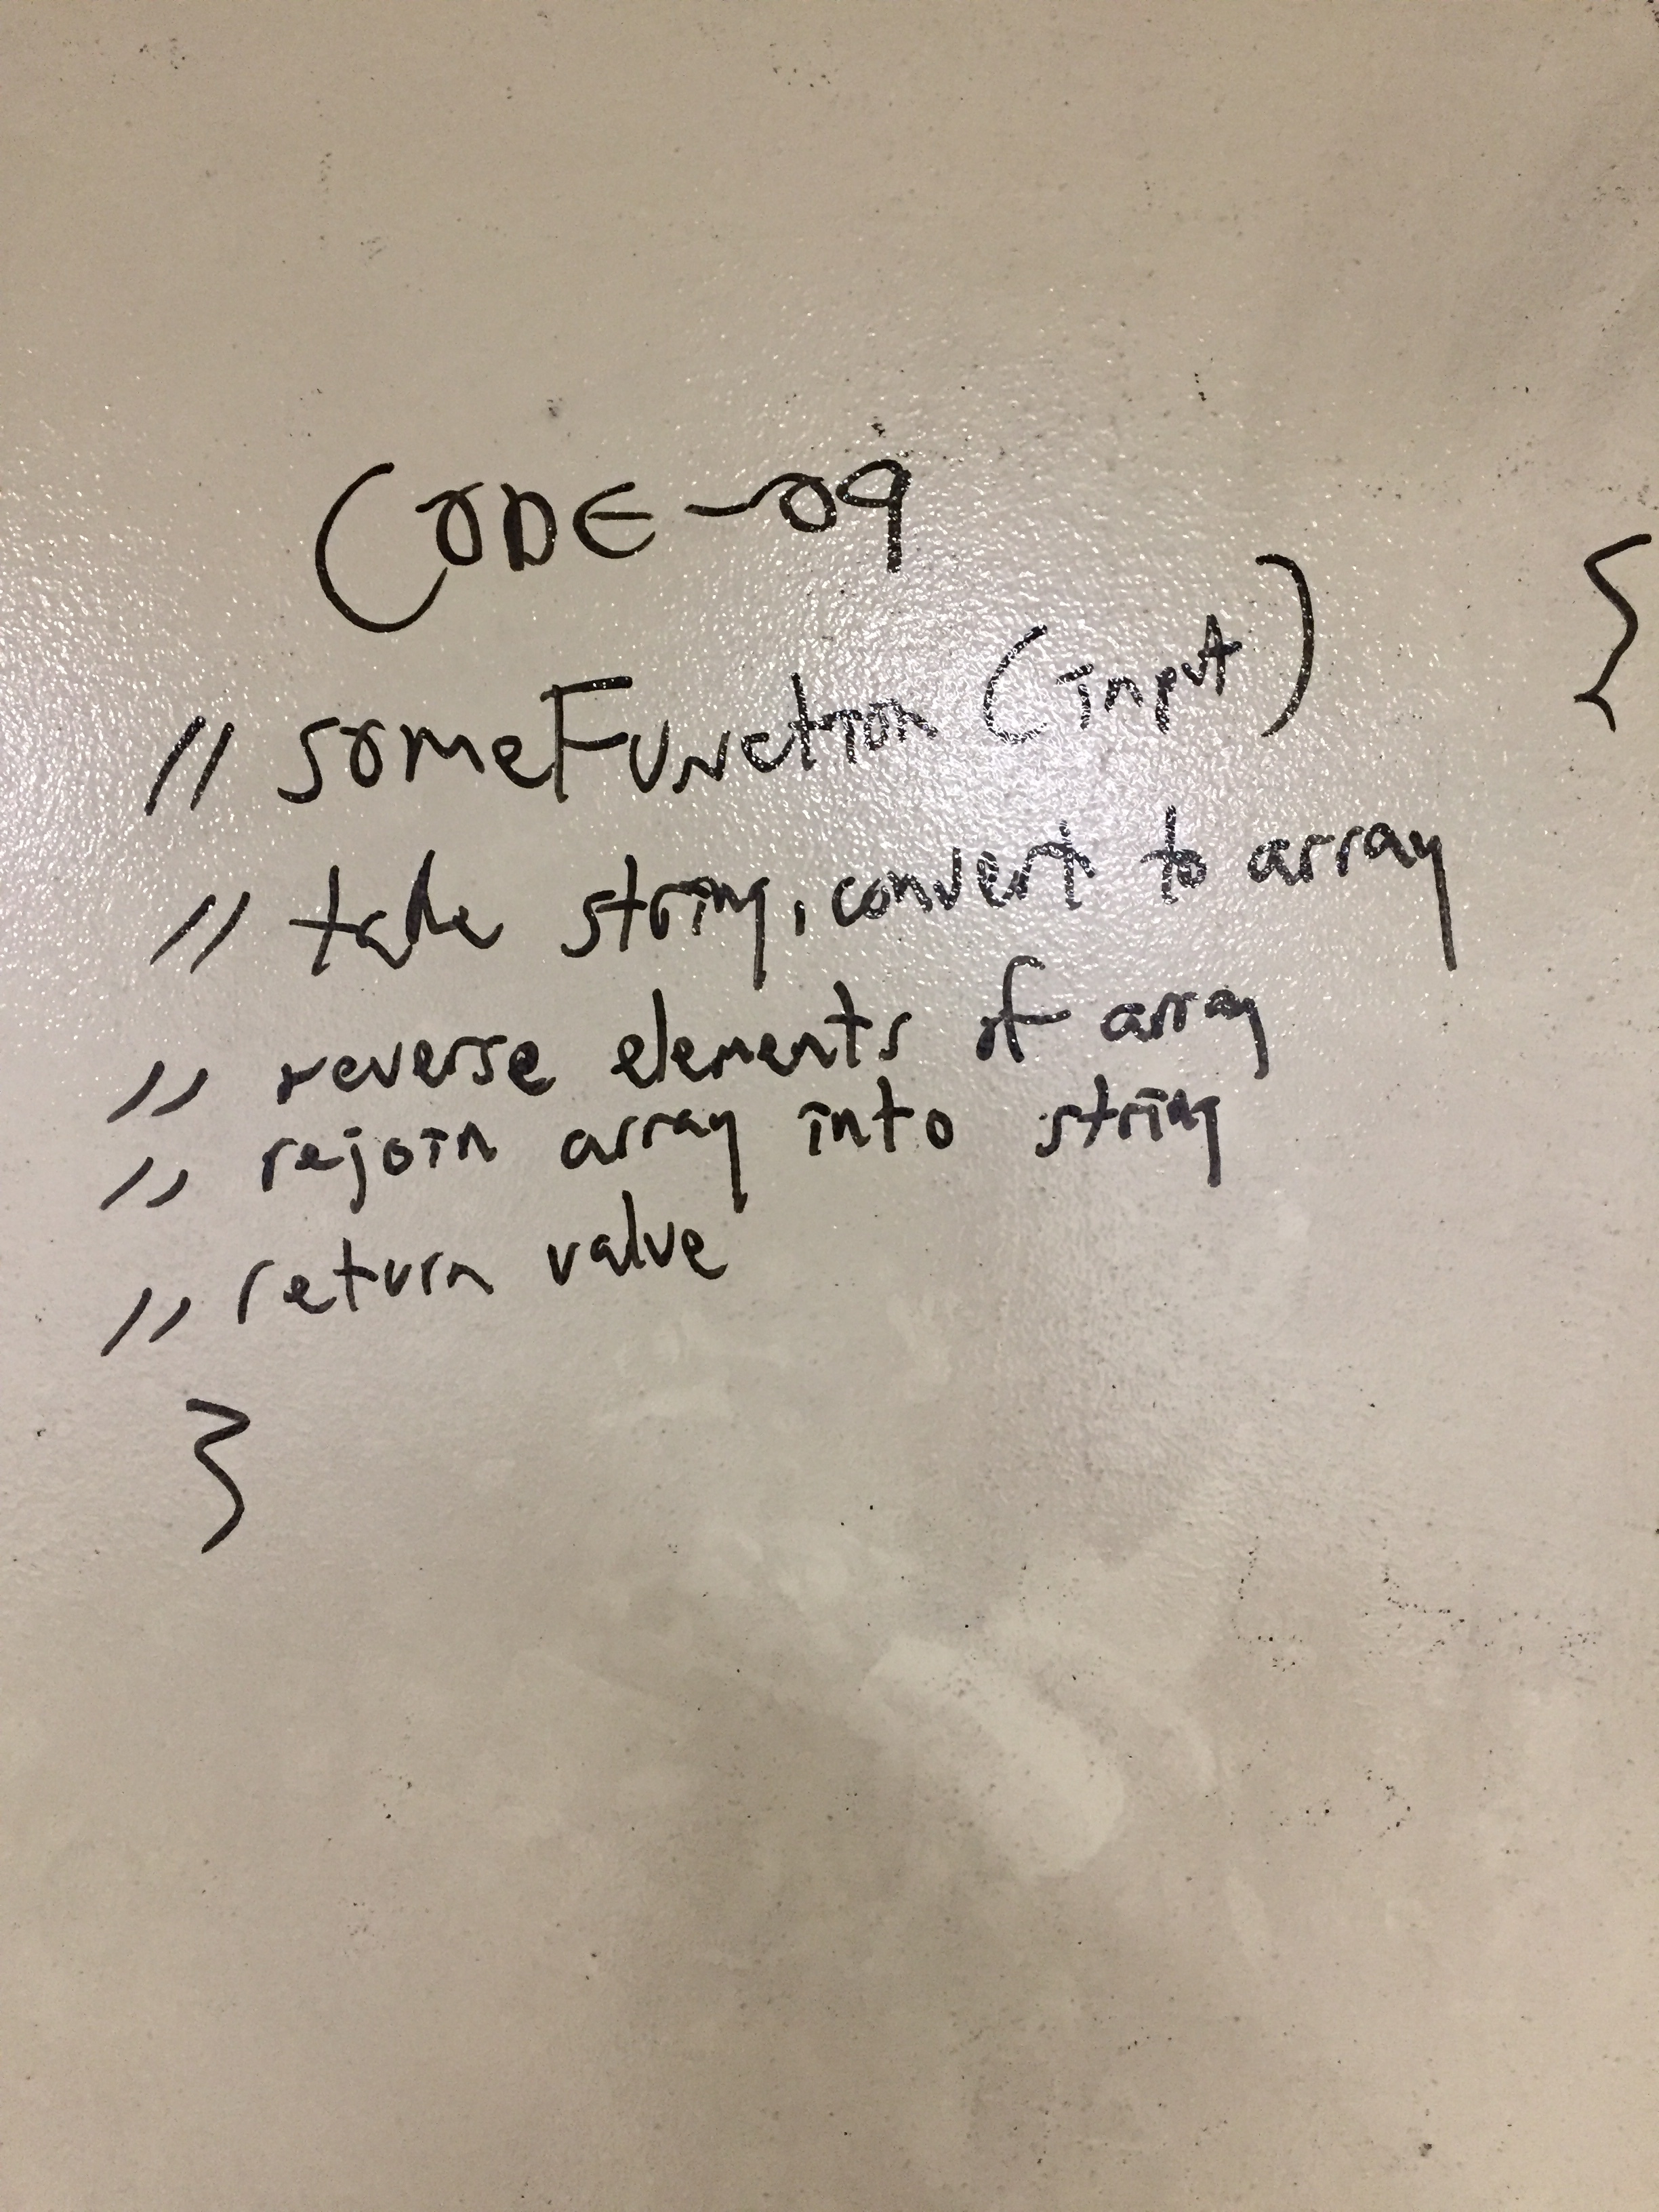 CODE-09
// someFunction (input) {
// take string, convert to array
// reverse elements of array
// rejoin array into string
// return value
}